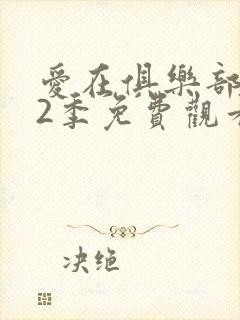 愛在俱樂部
2季免費觀看
决绝